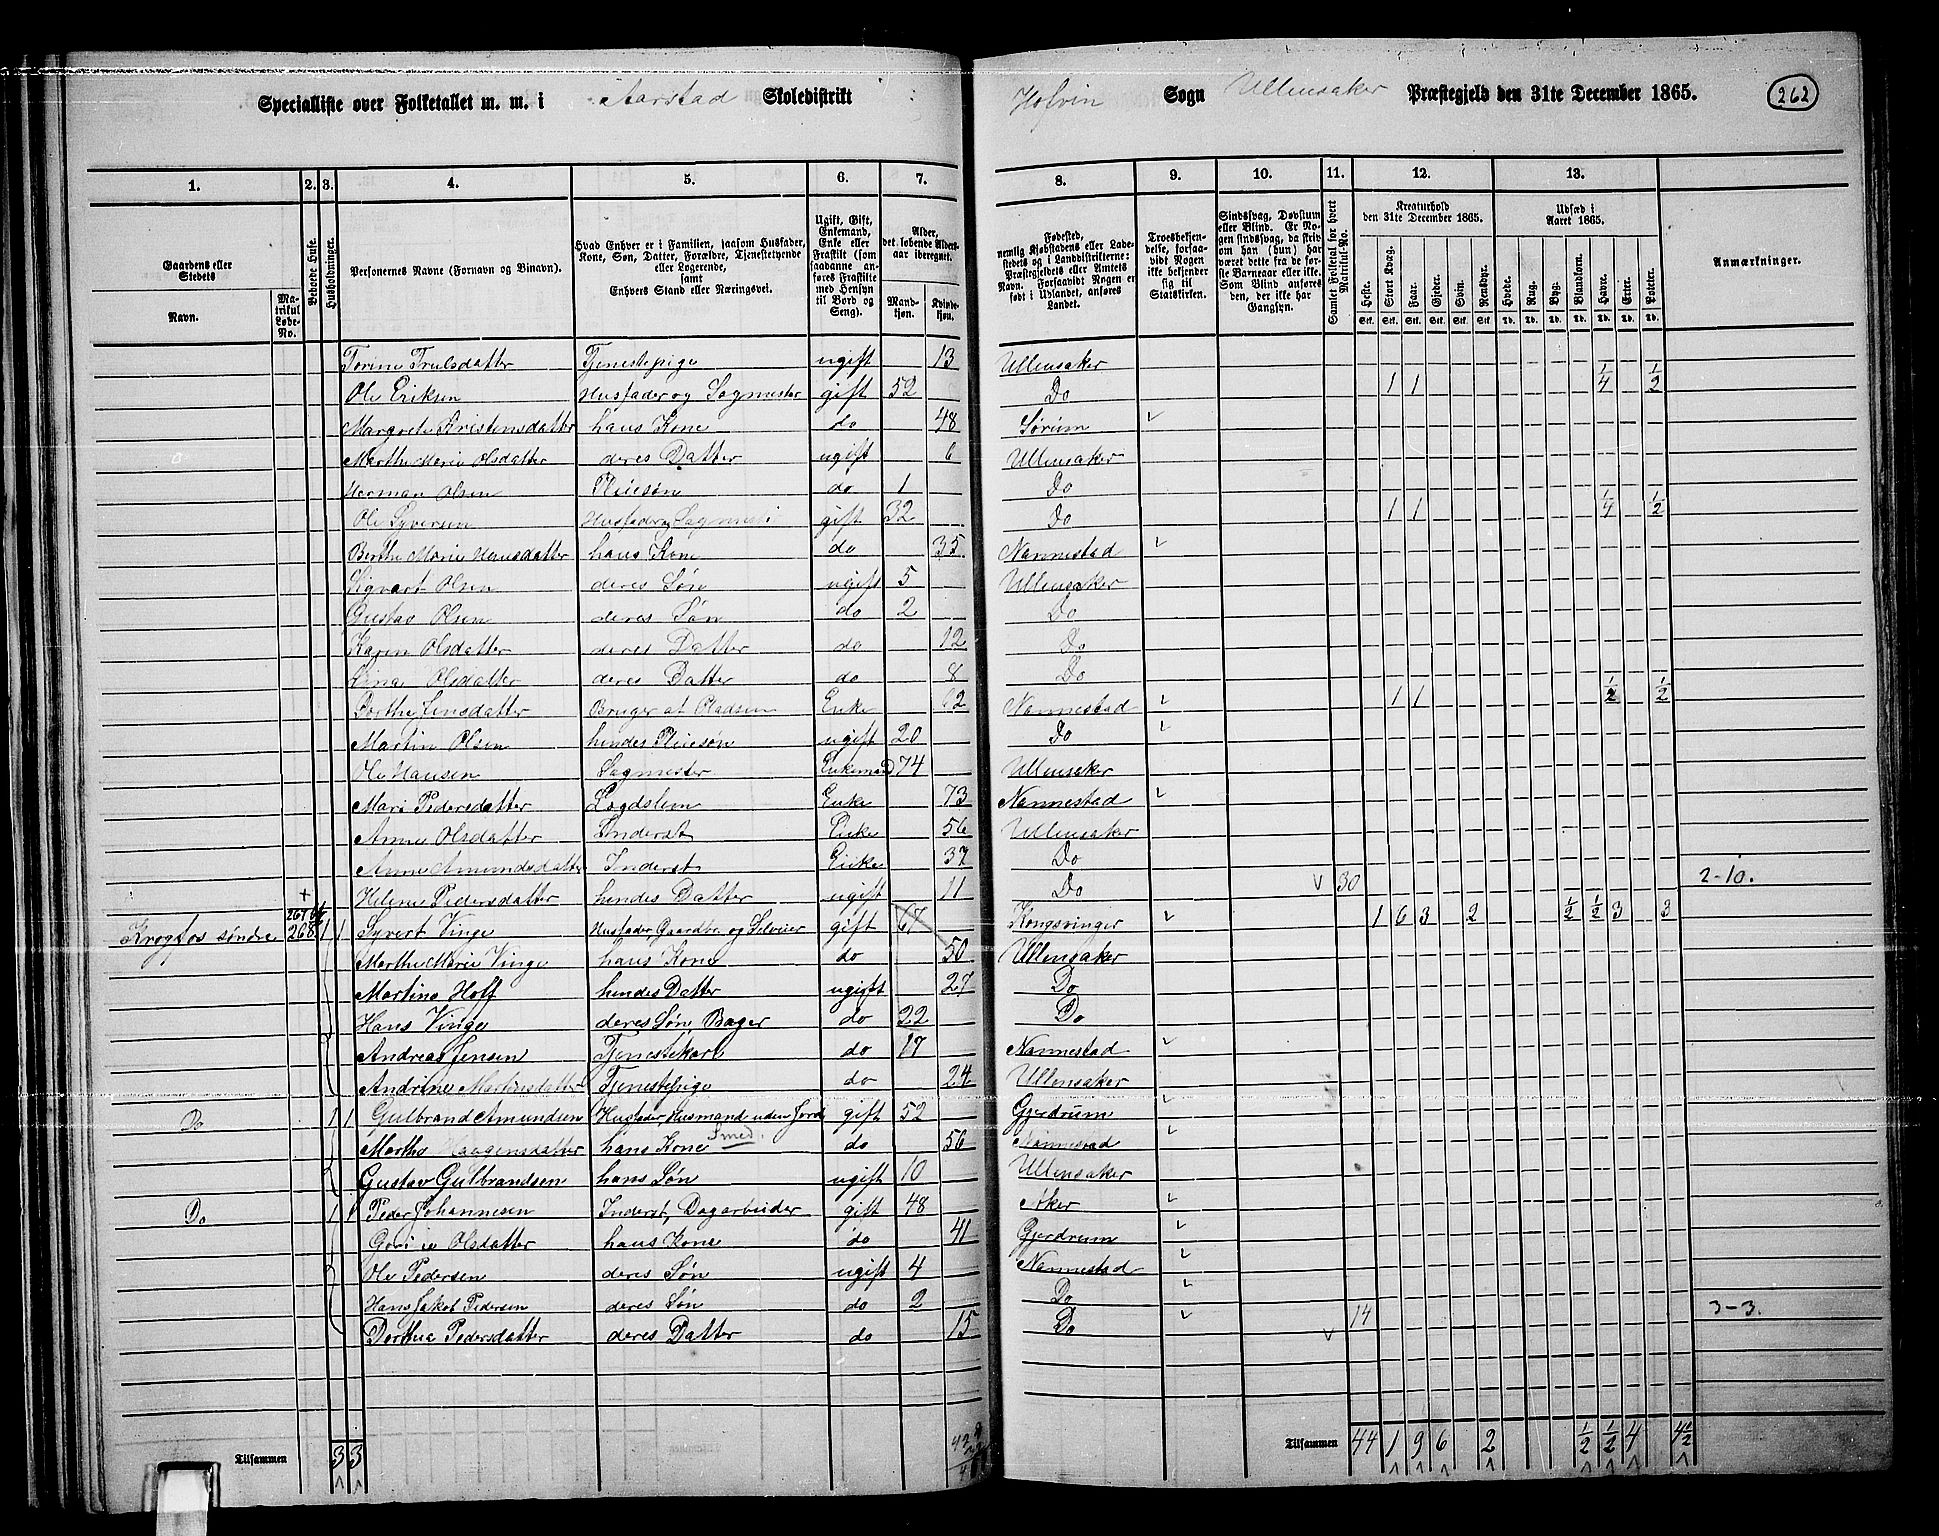 Specialliste over Folketallet m. m. i Aarstad Skoledistrikt Hofvin Sogn Ullensaker Præstegjeld den 31te December 1865. 262
1. 2. 3. 4. 5. 6. 7. 8. 9. 10. 11. 12. 13.
Gaardens eller Stedets Navn. Matrikul Løbe-No. Beboede Huse. Husholdninger. Personernes Navne (Fornavn og Binavn). Hvad Enhver er i Familien, saasom Husfader, Kone, Søn, Datter, Forældre, Tjenestetyende eller Logerende, samt Enhvers Stand eller Næringsvei. Ugift, Gift, Enkemand, Enke eller Fraskilt (som saadanne anføres Fraskilte med Hensyn til Bord og Seng). Alder, det løbende Aldersaar iberegnet. Mandkjøn. Kvindekjøn. Fødested, nemlig Kjøbstadens eller Ladestedets og i Landdistrikterne: Præstegjeldets eller Amtets Navn. Forsaavidt Nogen er født i Udlandet, anføres Landet. Troesbekjendelse, forsaavidt Nogen ikke bekjender sig til Statskirken. Sindssvag, Døvstum eller Blind. Er Nogen sindssvag, da skrives om han (hun) har været dette fra de første Barneaar eller ikke. Som Blind anføres den, der ikke har Gangsyn. Samlet Folketal for hvert Matrikul-No. Kreaturhold den 31te December 1865. Heste. Stort Kvæg. Faar. Gjeder. Svin. Rensdyr. Udsæd i Aaret 1865. Hvede. Rug. Byg. Blandkorn. Havre. Erter. Poteter. Anmærkninger.
Torine Trulsdatter Tjenestepige ugift 13 Ullensaker
Ole Eriksen Husfader og Sagmester gift 52 Do 1 1 1/4 1/2
Margrete Kristensdatter hans Kone do 48 Sørum
Marthe Marie Olsdatter deres Datter ugift 6 Ullensaker
Herman Olsen Pleiesøn do 1 Do
Ole Syversen Husfader, Sagmester gift 32 Do 1 1 1/4 1/2
Berthe Marie Hansdatter hans Kone do 35 Nannestad
Sigvart Olsen deres Søn ugift 5 Ullensaker
Gustav Olsen deres Søn do 2 Do
Karen Olsdatter deres Datter do 12 Do
Lina Olsdatter deres Datter do 8 Do
Dorthe Jensdatter Bruger af Pladsen Enke Nannestad 1 1 1/2 1/2
Martin Olsen hendes Pleiesøn ugift 20 Do
Ole Hansen Sagmester Enkemand 74 Ullensaker
Mari Pedersdatter Lægdslem Enke 73 Nannestad
Anne Olsdatter Inderst Enke 56 Ullensaker
Anne Amundsdatter Inderst Enke 37 Do
Helene Pedersdatter hendes Datter ugift 11 Do 30 2-10.
Krogfos søndre 267 268 1 1 Syvert Vinge Husfader Gaardbr. og Selveier gift 67 Kongsvinger 1 6 3 2 1/2 1/2 3 3
Marthe Marie Vinge hans Kone do 50 Ullensaker
Martine Hoff hendes Datter ugift 27 Do
Hans Vinge deres Søn, Bager do 22 Do
Andreas Jensen Tjenestekarl do 17 Nannestad
Andrine Martinsdatter Tjenestepige do 24 Ullensaker
Do 1 1 Gulbrand Amundsen Husfader, Husmand uden Jord gift 52 Gjerdrum
Marthe Haagensdatter hans Kone Smed. do 56 Nannestad
Gustav Gulbrandsen hans Søn ugift 10 Ullensaker
Do 1 1 Peder Johannesen Inderst, Dagarbeider gift 48 Aker
Olsdatter hans Kone do 41 Gjerdrum
Ole Pedersen deres Søn ugift 4 Nannestad
Hans Jakob Pedersen deres Søn do 2 Do
Dorthea Pedersdatter deres Datter do 15 Do 14 3-3.
Tilsammen 3 3 Tilsammen 44 1 9 6 2 1/2 1/2 4 4 1/2